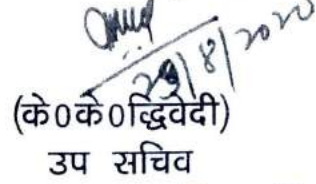 29/8/2020
(के0के0द्धिवेदी)
उप सचिव